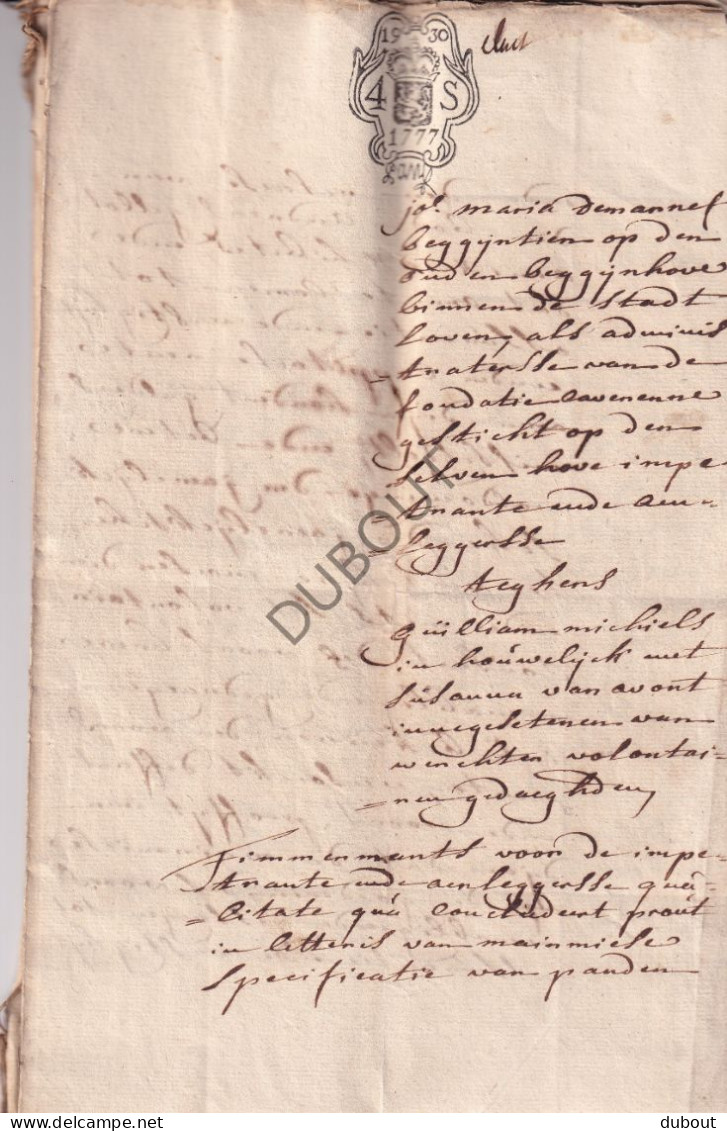 19 30
4 S
1777
jo. maria Demannef
beggijntien op den
ouden beggijnhove
binnen de stadt
loven, als adminis
tratersse van de
fondatie
gesticht op den
selven hove impe
trante ende aen-
= leggersse
teghens
guilliam michiels
in houwelijck met
susanna van avont
innegesetenen van
werchten volontai-
= ren gedaeghden
Timmermants voor de impe-
trante ende aenleggersse quá-
= litate quá concludeert prout
in litteris van mainmiese
specificatie van panden
DUBOUT
delcampe.net
dubout